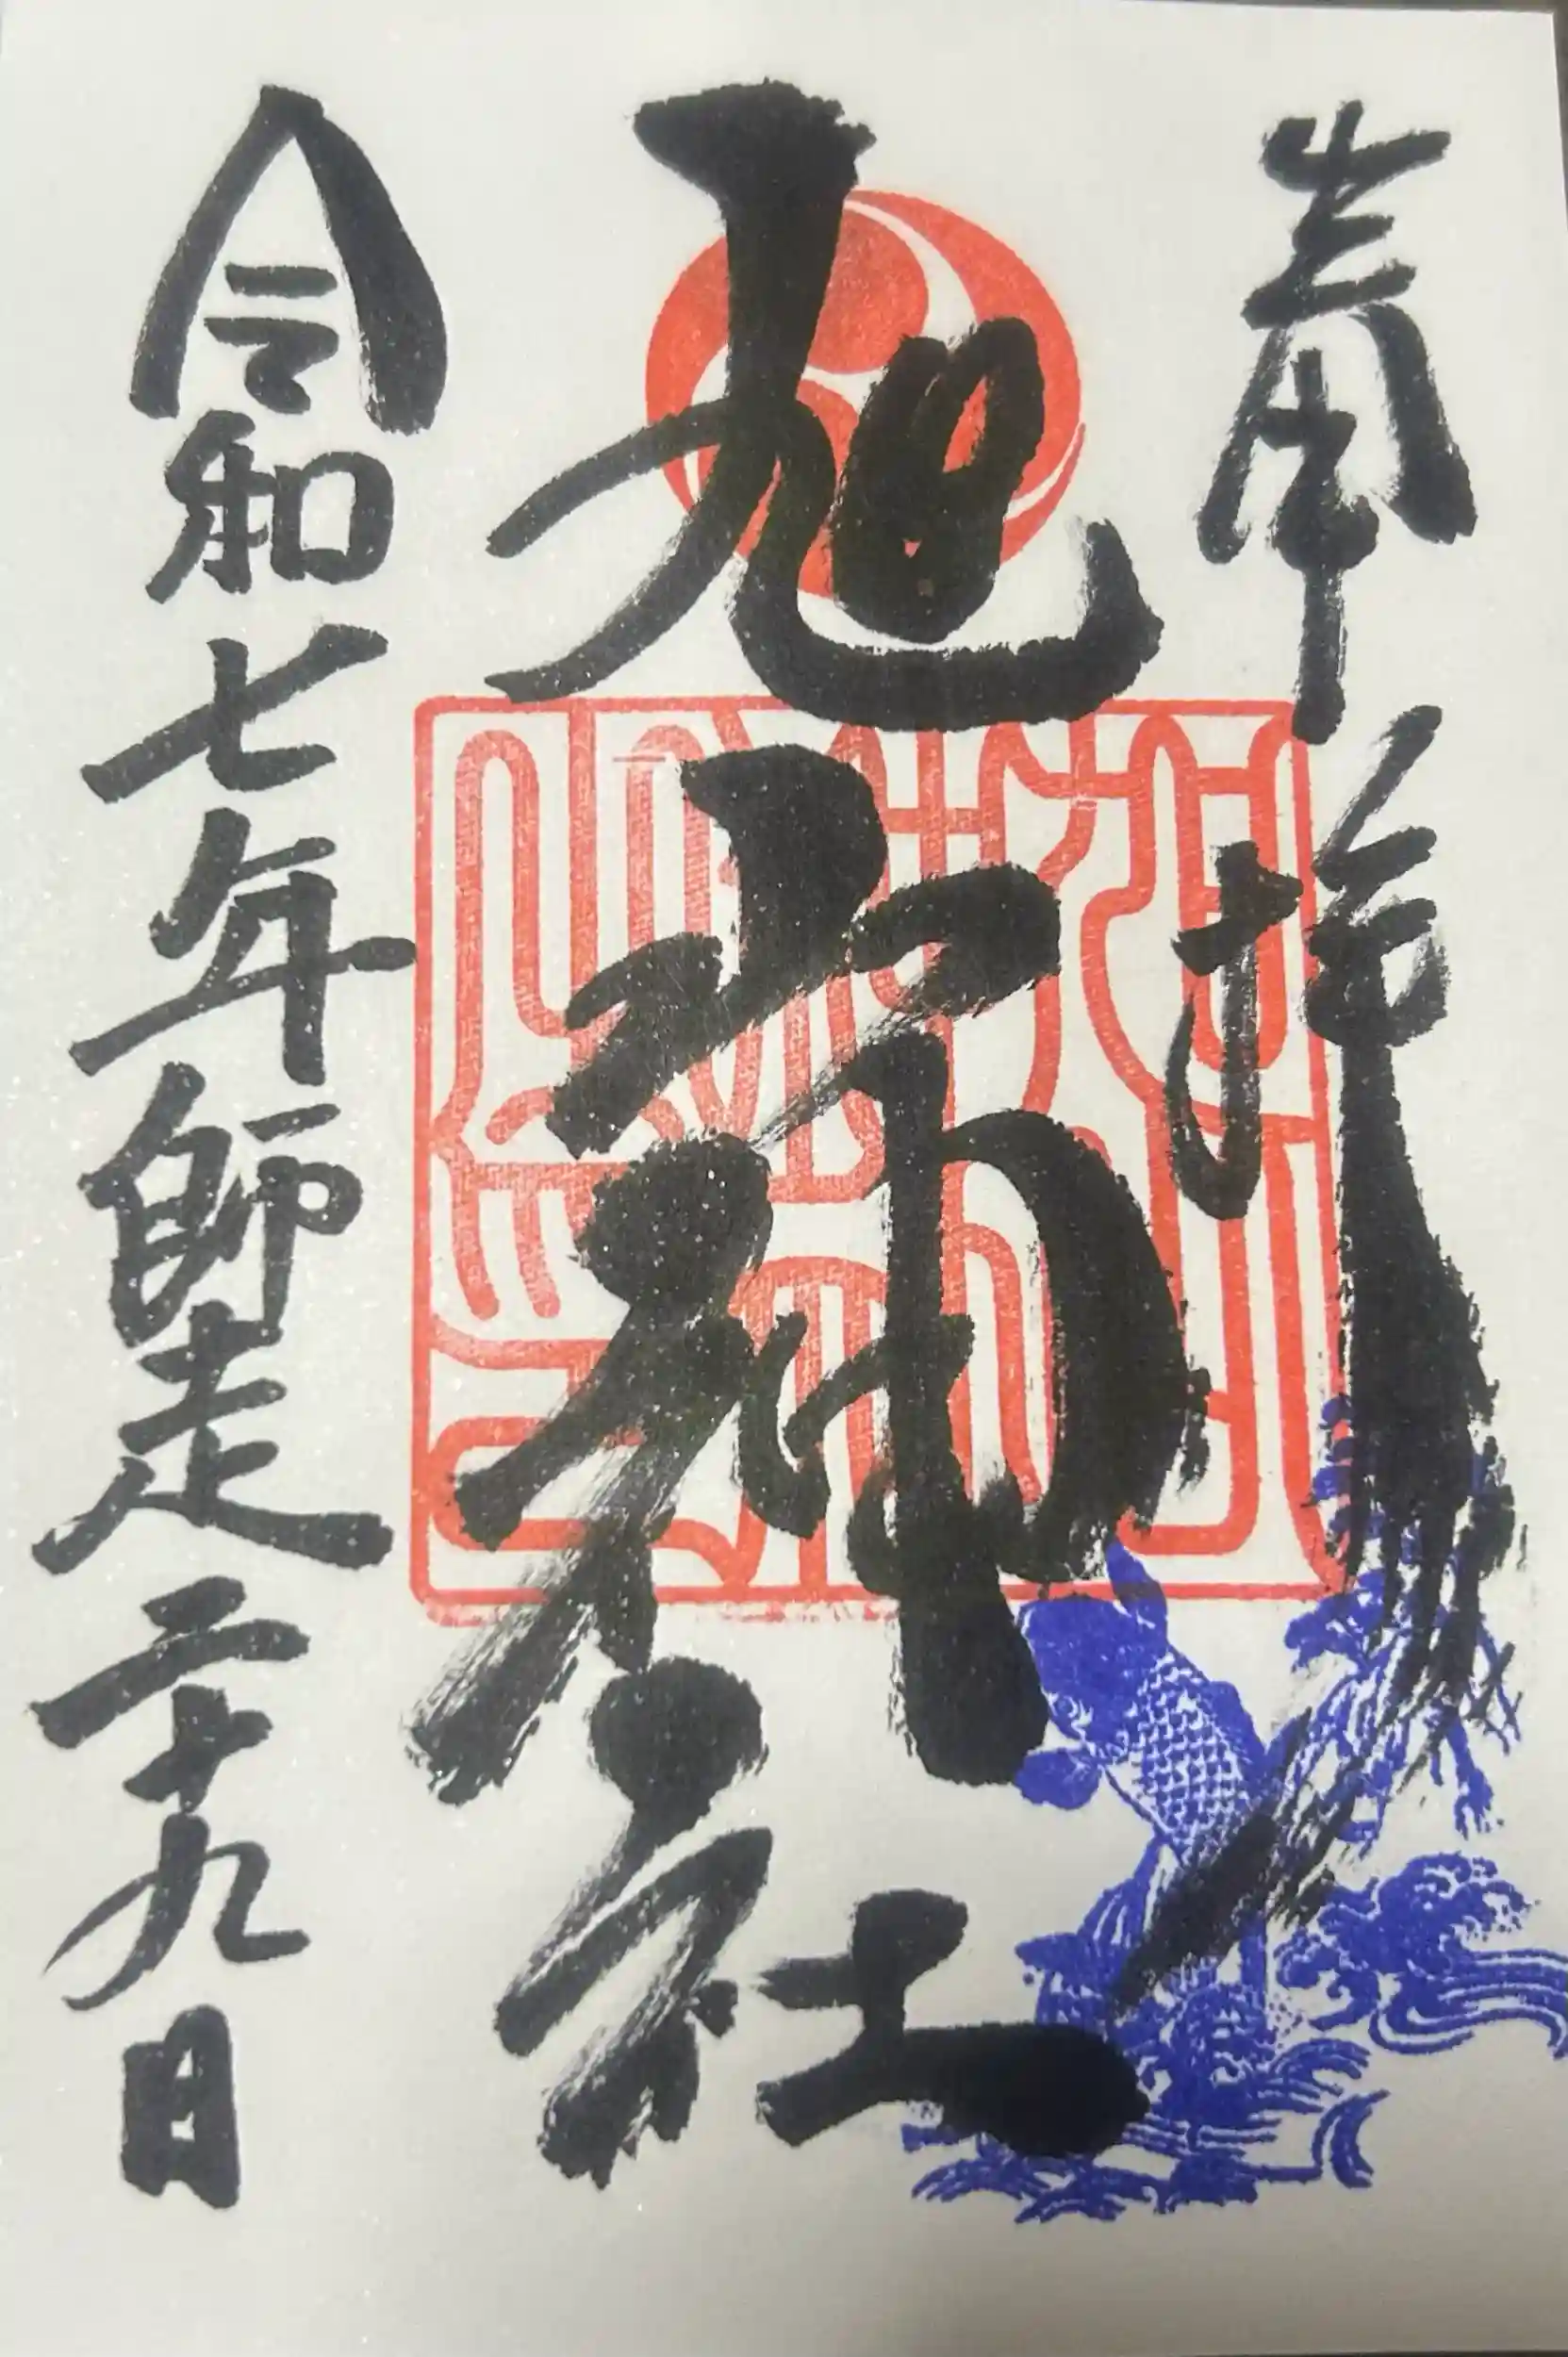 奉拝
旭山神社
令和七年師走二十九日